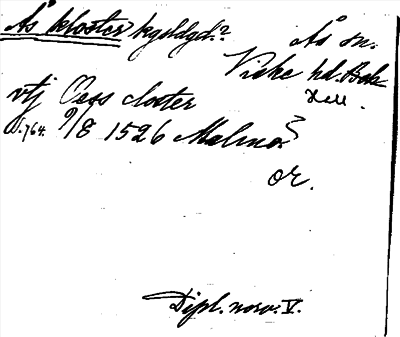 Ås kloster kyldgd.? Ås sn.
Viske hd. Bok
Hall.
vtj Oess closter
s. 764. 9/8 1526 Malmö
or.
Dipl. norv. V.